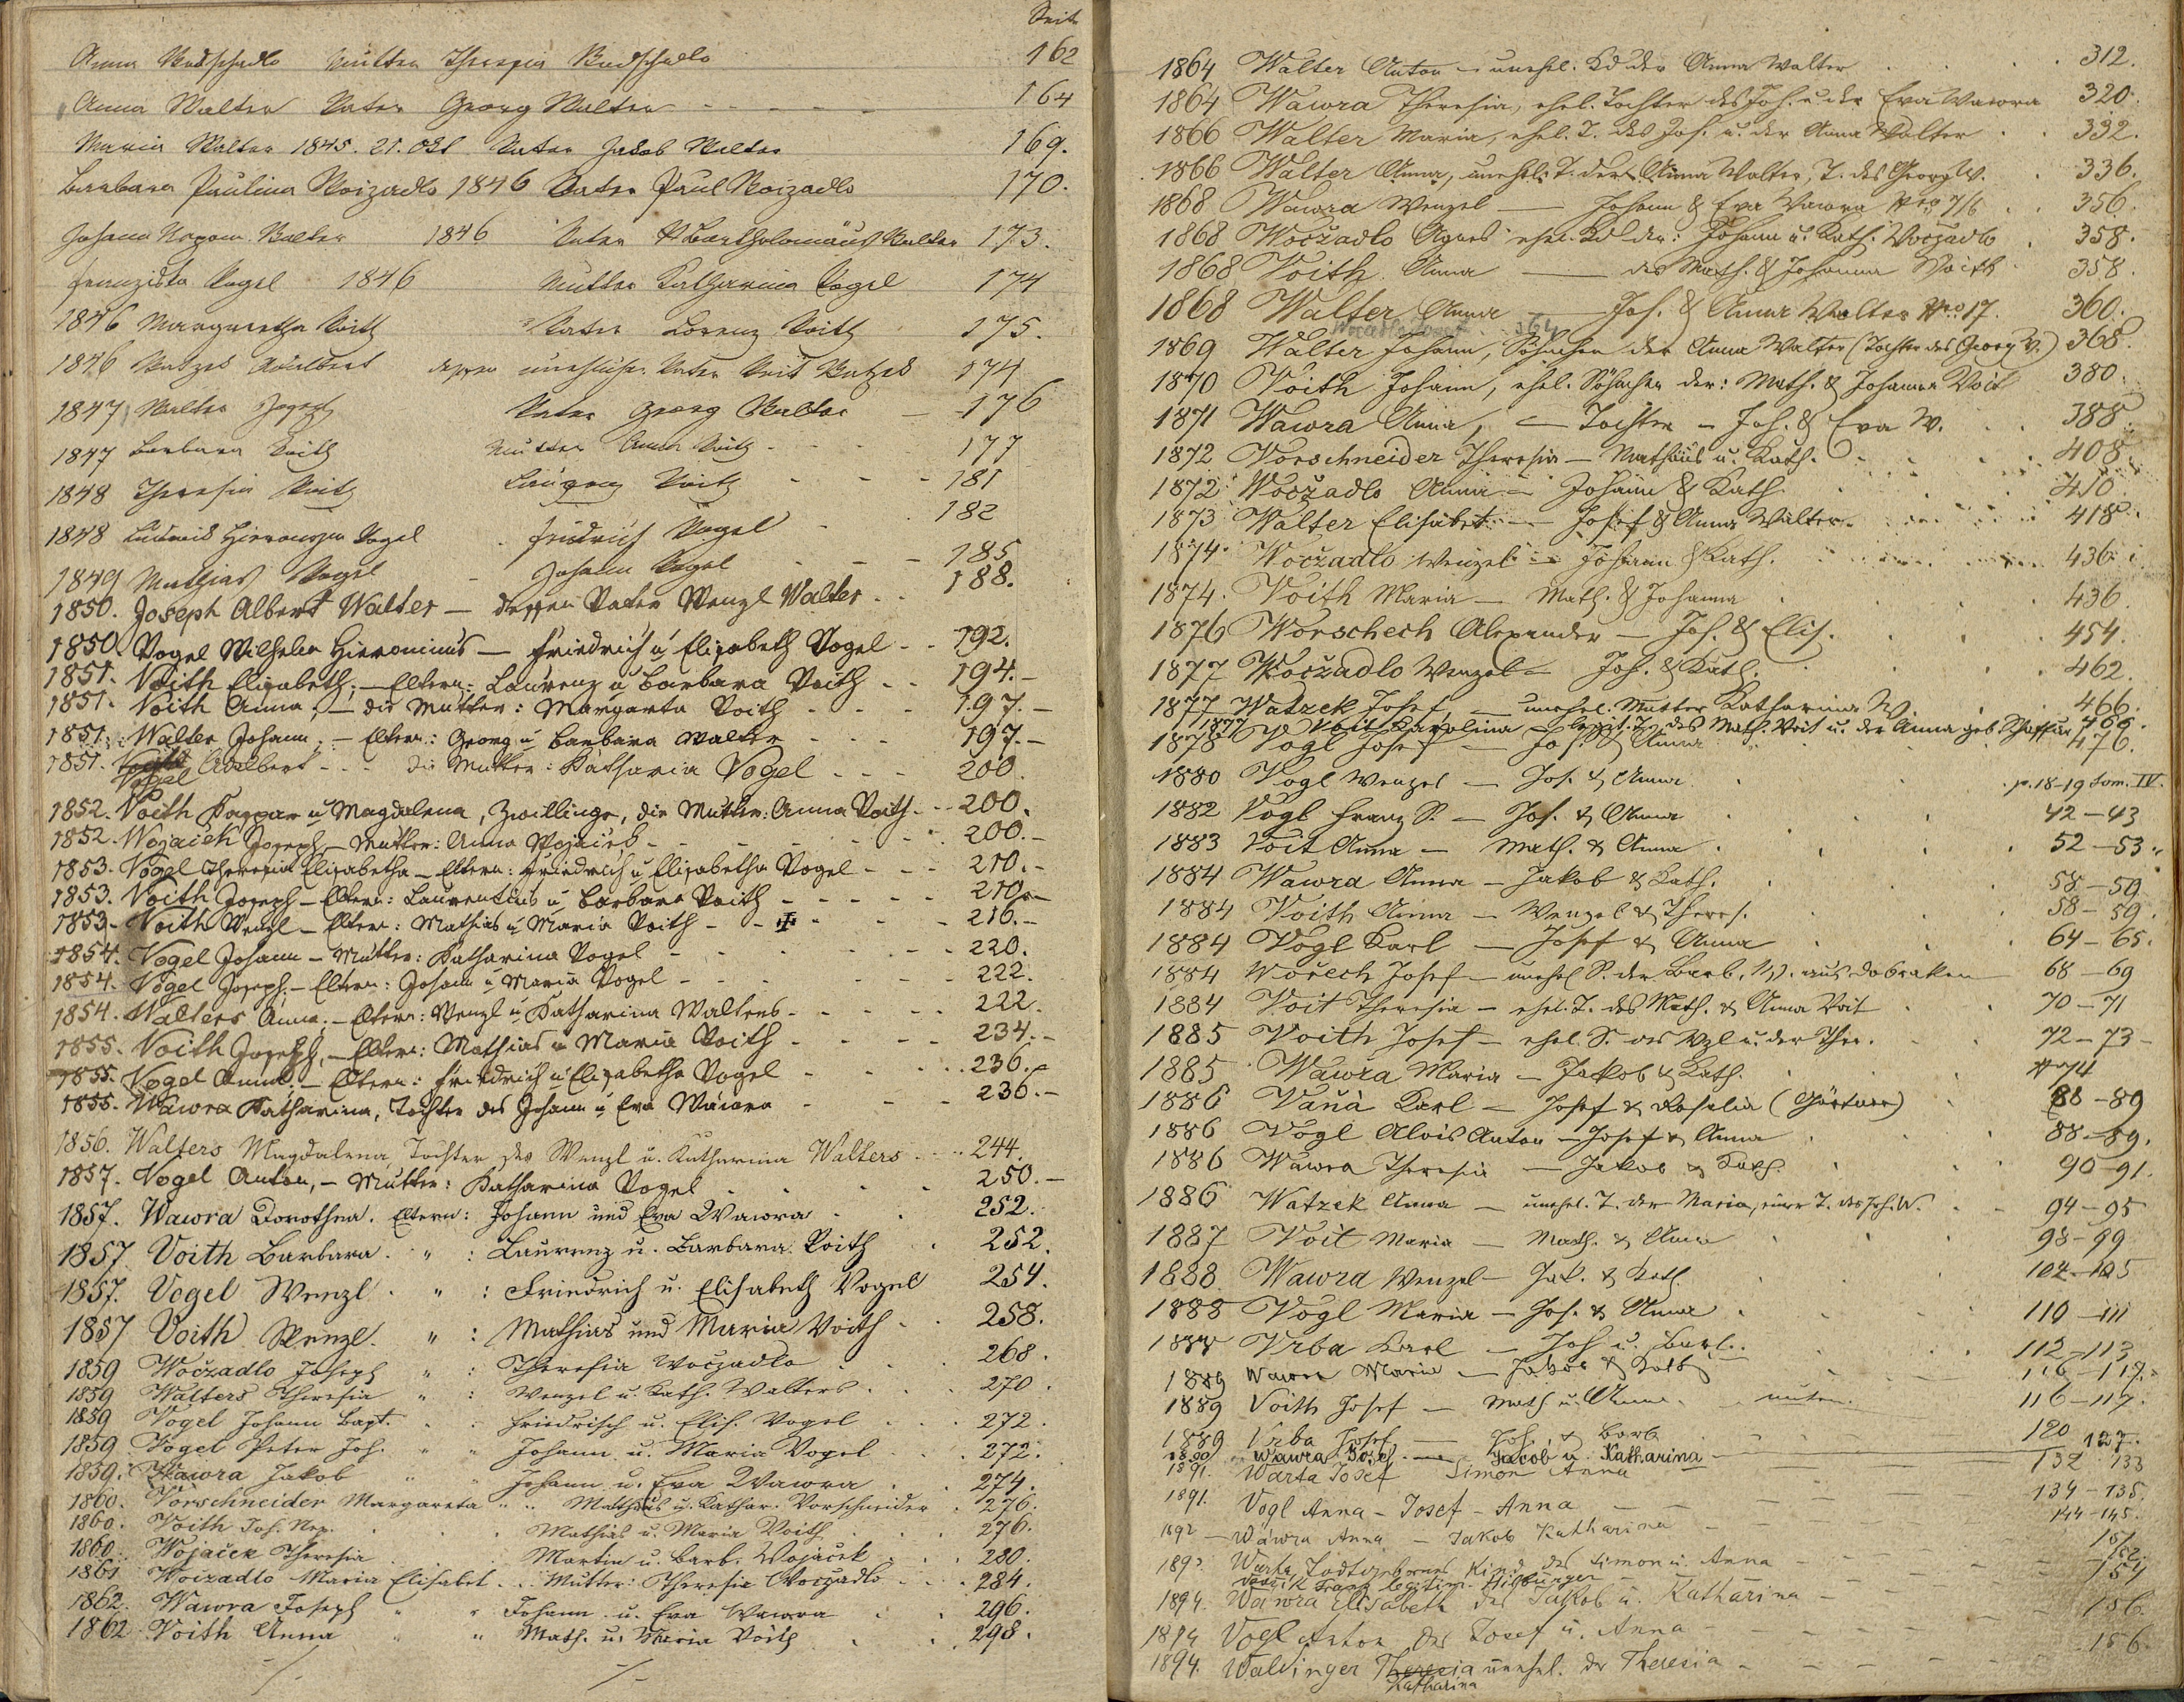 Seite
Anna Mutter Theresia 162
Anna Walter Vater Georg Walter 164
Maria Walter 1845. 21. Okt Vater Jakob Walter 169.
Barbara Paulina Woizadlo 1846 Vater Paul Woizadlo 170.
Johann Nepom. Walter 1846 Vater Bartholomäus Walter 173.
Franziska Vogel 1846 Mutter Katharina Vogel 174
1846 Margaretha Voith Vater Lorenz Voith 175.
1846 Watzek Adalbert dessen Vater Veit Watzek 174
1847 Walter Joseph Vater Georg Walter 176
1847 Barbara Voith Mutter Anna Voith 177
1848 Theresia Voith Voith 181
1848 Ludwig Vogel Fridrich Vogel 182
1849 Mathias Vogel Johann Vogel 185
1850. Joseph Albert Walter — dessen Vater Wenzl Walter 188.
1850. Vogel Wilhelm Hieronimus — Friedrich u Elisabeth Vogel 192.
1851. Voith Elisabeth, — Eltern: Laurenz u Barbara Voith 194.-
1851. Voith Anna, — die Mutter: Margareta Voith 197.-
1851. Walter Johann. — Eltern: Georg u Barbara Walter 197.-
1851. Vogel Adalbert - - die Mutter: Katharia Vogel 200
1852. Voith Kaspar u Magdalena, Zwillinge, die Mutter: Anna Voith 200.
1852. Wojačék Joseph — Mutter: Anna Wojaček 200.-
1853. Vogel Theresia Elisabetha — Eltern: Friedrich u Elisabetha Vogel 210.-
1853. Voith Joseph — Eltern: Laurentius u Barbara Voith 210.-
1853. Voith Wenzl — Eltern: Mathias u Maria Voith 216.-
1854. Vogel Johann — Mutter: Katharina Vogel 220.
1854. Vogel Joseph, — Eltern: Johann u Maria Vogel 222.
1854. Walters Anna, — Eltern: Wenzl u Katharina Walters 222.
1855. Voith Joseph, — Eltern: Mathias u Maria Voith 234.-
1855. Vogel Anna. — Eltern: Friedrich u Elisabetha Vogel 236.-
1855. Wawra Katharina, Tochter des Johann u Eva Wawra 236.-
1856. Walters Magdalena, Tochter des Wenzl u. Katharina Walters 244.
1857. Vogel Anton, — Mutter: Katharina Vogel 250.-
1857. Wawra Dorothea. Eltern: Johann und Eva Wawra 252.
1857. Voith Barbara. " : Laurenz u. Barbara Voith 252.
1857. Vogel Wenzl. " : Friedrich u. Elisabeth Vogel 254.
1857 Voith Wenzl. " : Mathias und Maria Voith 258.
1859 Woczadlo Joseph " : Theresia Woczadlo 268.
1859 Walters Theresia " : Wenzel u. Kath. Walters 270.
1859 Vogel Johann Bapt. Friedrich u. Elis. Vogel 272.
1859 Vogel Peter Joh. " " Johann u. Maria Vogel 272.
1859. Wawra Jakob " " Johann u. Eva Wawra 274.
1860. Vorschneider Margareta " " Mathäus u. Kathar. Vorschneider 276.
1860. Voith Joh. Nep. Mathias u. Maria Voith 276.
1860. Wojaček Theresia Martin u. Barb. Wojacek 280.
1861 Woizadlo Maria Elisabet Mutter: Theresia Woczadlo 284.
1862. Wawra Joseph " " Johann u. Eva Wawra 296.
1862 Voith Anna " " Math. u. Maria Voith 298.
1864 Walter Anton — unehel. Kd der Anna Walter 312.
1864 Wawra Theresia, ehel. Tochter des Joh. u der Eva Wawra 320.
1866 Walter Maria, ehel. T. des Jos. u. der Anna Walter 332.
1866 Walter Anna, unehel. T. der Anna Walter, T. des Georg W. 336.
1868 Wawra Wenzel — Johann & Eva Wawra Nro 7/6 356.
1868 Wočzadlo Agnes ehel. Kd der: Johann u. Kath. Wočzadlo 358.
1868 Voith Anna — des Math. & Johanna Voith 358.
1868 Walter Anna — Jos. & Anna Walter Nro 17. 360.
Woczadlo Josef 364
1869 Walter Johann, Söhnchen der Anna Walter (Tochter des Georg W.) 368.
1870 Voith Johann, ehel. Söhnchen der: Math. & Johanna Voit 380.
1871 Wawra Anna, — Tochter — Joh. & Eva W. 388.
1872 Vorschneider Theresia — Mathäus u. Kath. 408.
1872 Wočzadlo Anna — Johann & Kath. 410
1873 Walter Elisabet — Josef & Anna Walter 418.
1874 Woczadlo Wenzel — Johann & Kath. 436.
1874. Voith Maria — Math. & Johanna 436.
1876 Worschech Alexander — Jos. & Elis. 454.
1877 Woczadlo Wenzel — Joh. & Kath. 462.
1877 Watzek Josef, — unehel. Mutter Katharina W. 466.
1877 Voit Karolina — legit. T. des Math. Voit u. der Anna geb. 466.
1878 Vogl Josef — Jos. & Anna 476.
1880 Vogl Wenzel — Jos. & Anna p. 18-19 tom. IV.
1882 Vogl Franz S. — Jos. & Anna 42-43
1883 Voit Anna — Math. & Anna 52-53
1884 Wawra Anna — Jakob & Kath. 58-59
1884 Voith Anna — Wenzel & Theres. 58-59.
1884 Vogl Karl — Josef & Anna 64-65.
1884 Worech Josef — unehel S. der Barb. W. aus Dobraken 68-69
1884 Voit Theresia — ehel. T. des Math. & Anna Voit 70-71
1885 Voith Josef — ehel. S. des Wzl u. der Ther. 72-73
1885 Wawra Maria — Jakob & Kath. 74
1886 Vaňa Karl — Josef & Rosalia (Gärtner) 88-89
1886 Vogl Alois Anton — Josef & Anna 88-89.
1886 Wawra Theresia — Jakob & Kath. 90-91.
1886 Watzek Anna — unehel. T. der Maria, einer T. des Joh. W. 94-95
1887 Voit Maria — Math. & Anna 98-99
1888 Wawra Wenzel — Jak. & Kath. 104-105
1888 Vogl Maria — Jos. & Anna 110-111
1888 Vrba Karl — Joh u. Barb. 112-113
1889 Wawra Maria — Jakob & Kath 116-117.
1889 Voith Josef — Math u. Anna 116-117.
1889 Vrba Josef — Joh. & Barb 120
1890 Wawra Josef — Jacob u. Katharina 127.
1891. Warta Josef Simon Anna 132 133
1891. Vogl Anna - Josef - Anna 134-135.
1892 - Wawra Anna - Jakob Katharina 144-145.
1893 Warta Todtgebornes Kind des Simon u. Anna 151
Franz legitim. 152
1894. Wawra Elisabeth des Jakob u. Katharina 154
1894 Vogl Anton des Josef u. Anna 156.
1894. Waldinger Theresia unehel. der Theresia 156.
Katharina